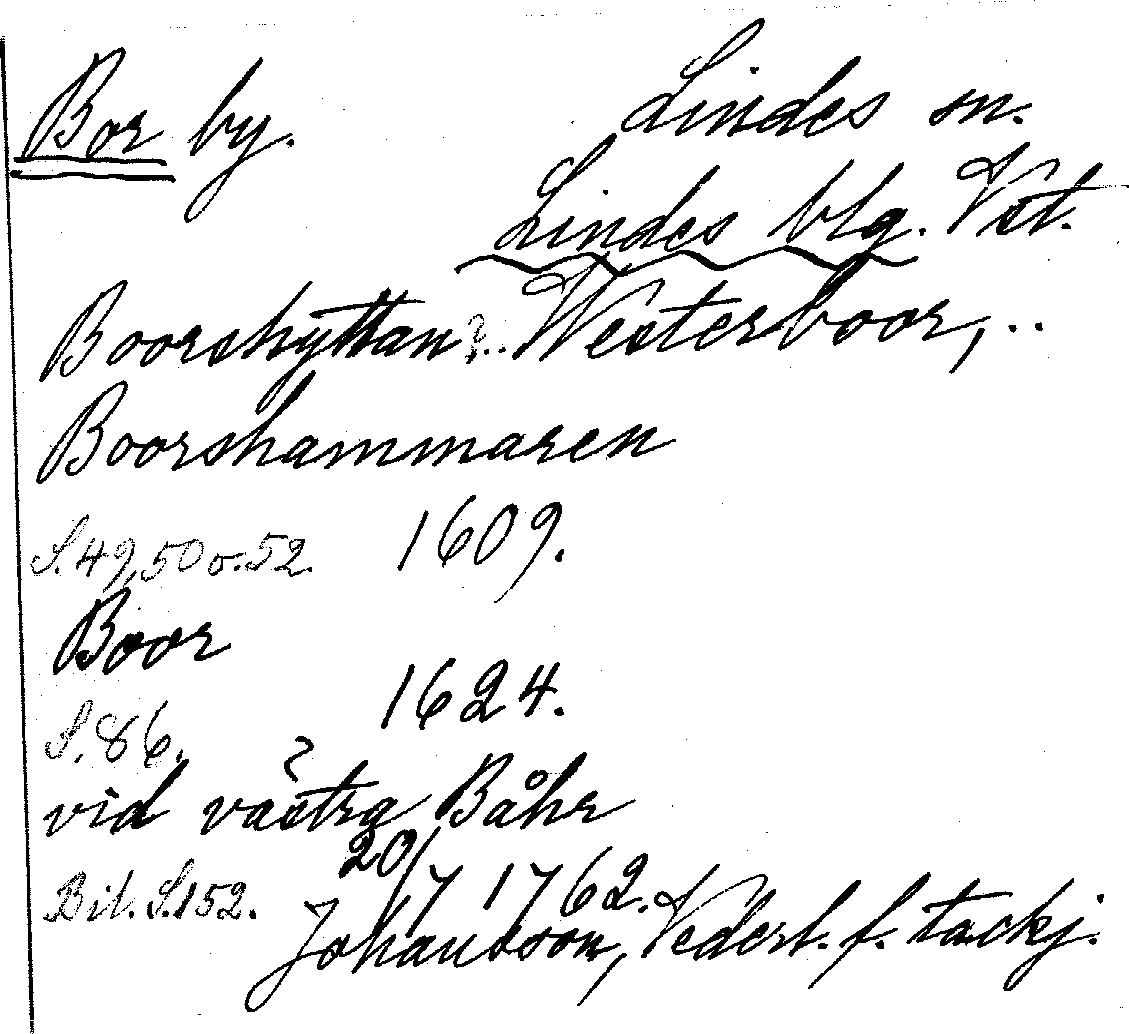 Bor by. Lindes sn.
Lindes blg. Vst.
Boorshyttan?.. Westerboor, ..
Boorshammaren
S. 49, 50 o. 52. 1609.
Boor
S. 86. 1624.
vid västra Båhr
Bil. S. 152. 20/7 1762.
Johansson, Vederl. f. tackj.